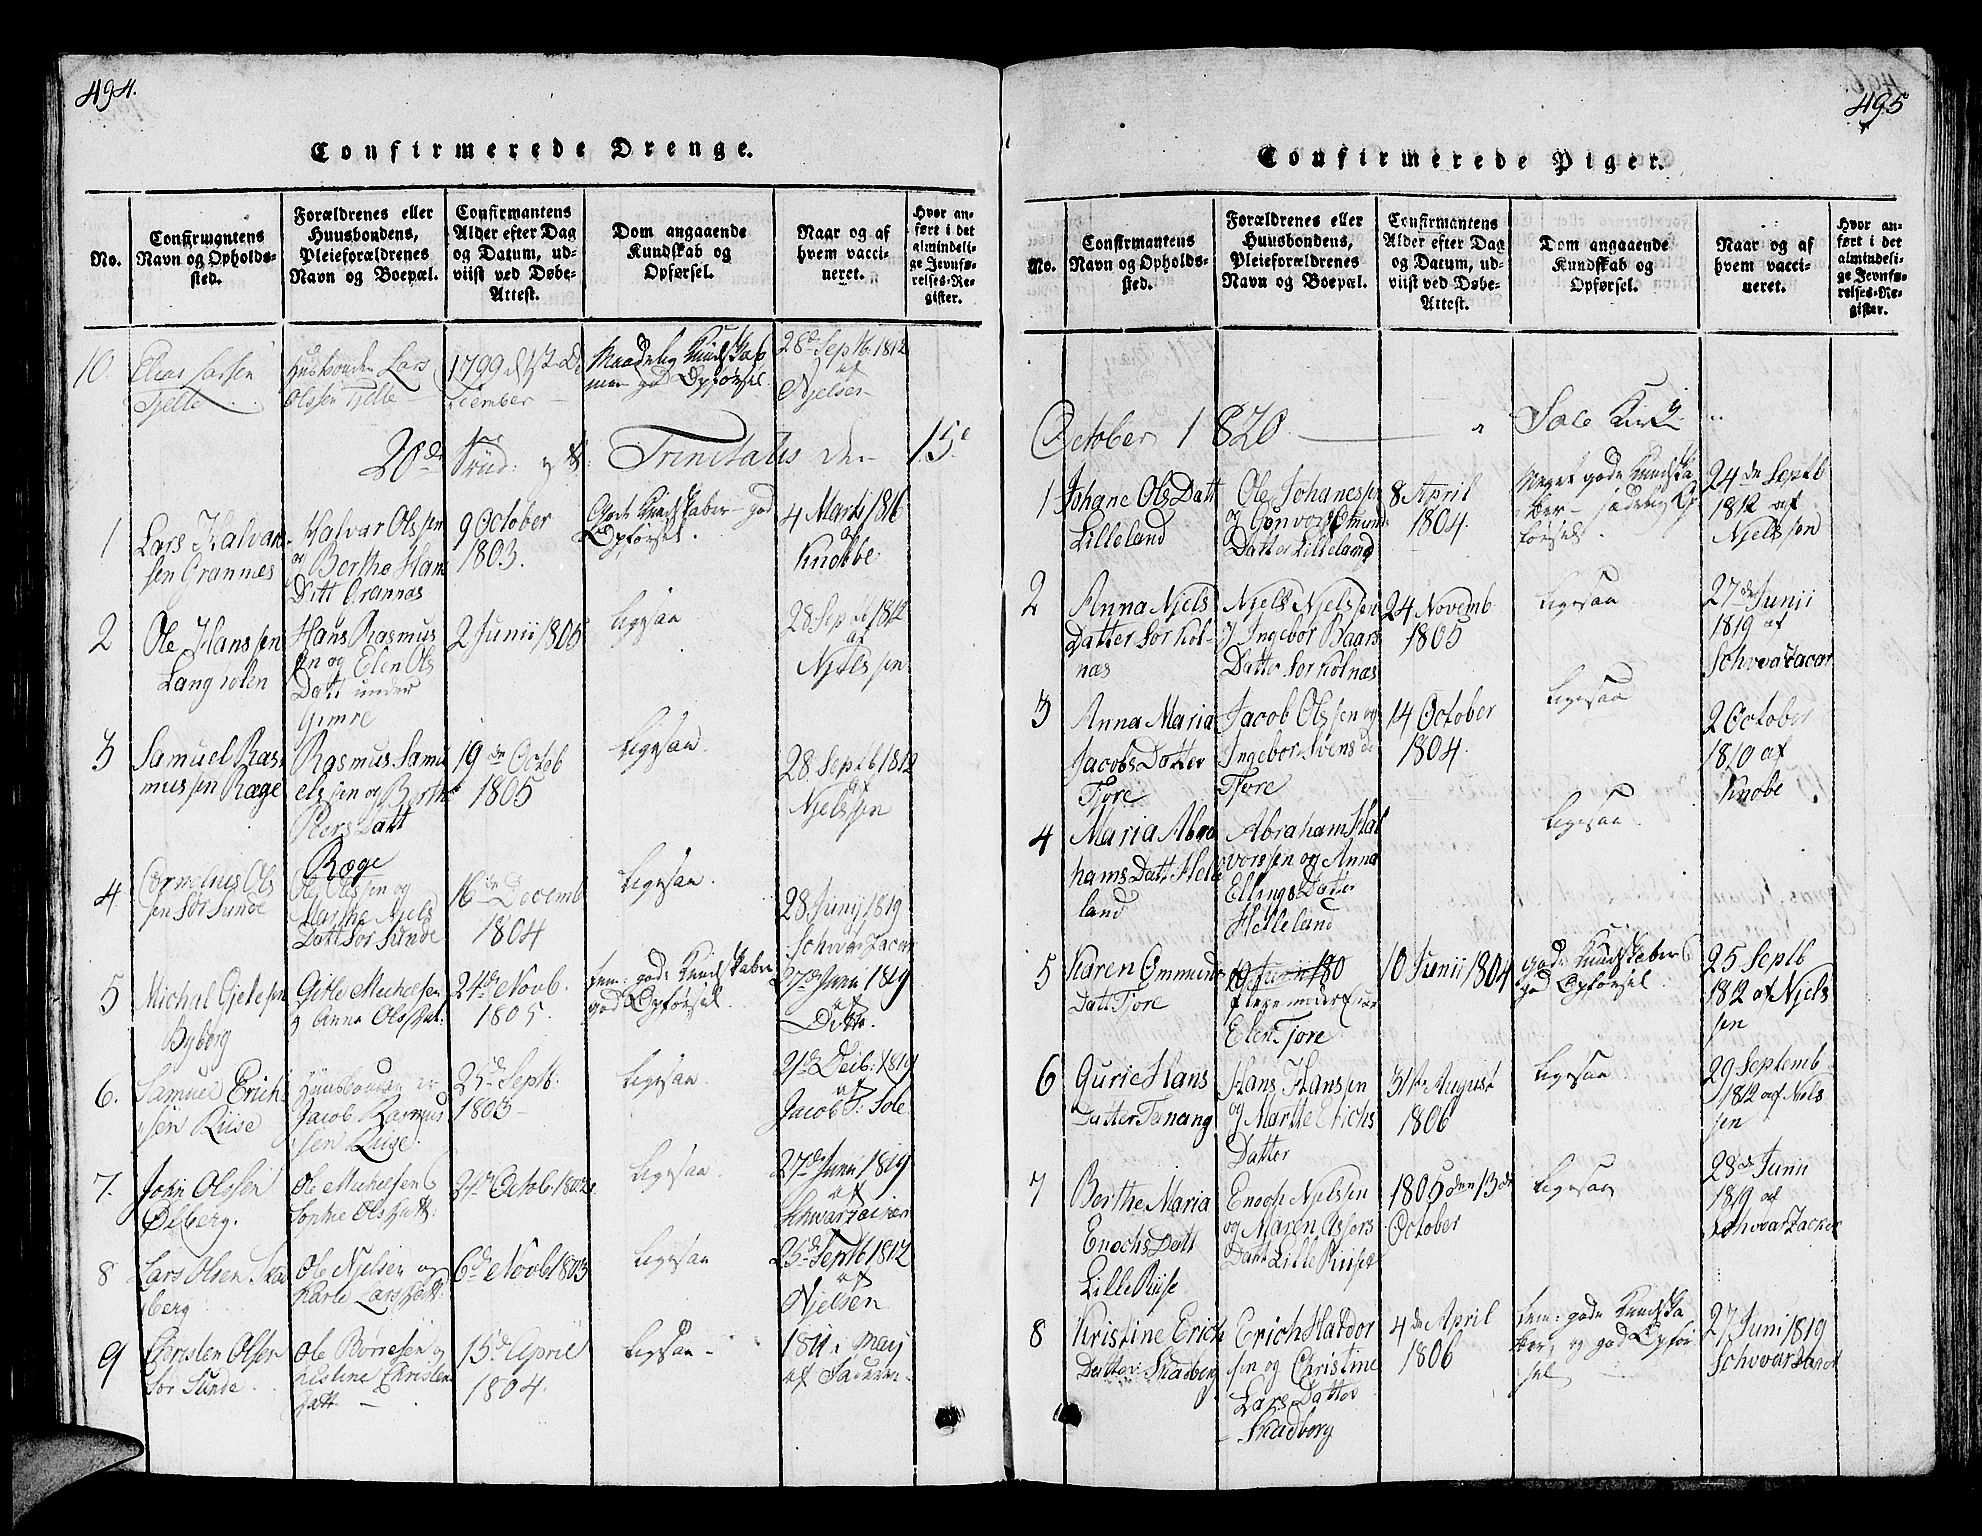 494.
Confirmerede Drenge.
No.
Confirmantens
Navn og Opholds-
sted.
Forældrenes eller
Huusbondens,
Pleieforældrenes
Navn og Boepæl.
Confirmantens
Alder efter Dag
og Datum, ud-
viist ved Døbe-
Attest.
Dom angaaende
Kundskab og
Opførsel.
Naar og af
hvem vacci-
neret.
Hvor an-
ført i det
almindeli-
ge Jevnfø-
relses-Re-
gister.
10.
Elias Larsen
Tjelte
Husbonden Lars
Olssen Tjelte
1799 d. 1st De
cember
Maadelig Kundskab
men god Opførsel
28de Septb. 1812
af
Njelsen
20de Trinitatis den 15e
1
Lars Halvar
sen Grannæs
Halvar Olssen
og Berthe Ham
Datt Grannæs
9 October
1803.
Gode Kundskaber god
Opførsel.
4 Marts 1816
af
Knobbe
2
Ole Hanssen
Langholen
Hans Rasmus
sen og Elen Ols
Datt under
Gimre
2 Junii 1805
Ligesaa
28 Septb 1812
af
Njelssen
3
Samuel Ras
mussen Ræge
Rasmus Samu
elssen og Berthe
Peers Datt
Ræge
19de Octob
1805
Ligesaa.
28 Septb 1812
af
Njelssen
4
Cornelius Ols
sen Sør Sunde
Ole Olssen og
Marthe Njels
Datt Sør Sunde
16de Decemb
1804
Ligesaa.
28 Junij 1819
Schwartzacker
5
Michal Gitlesen
Byberg
Gitle Michelsen
og Anna Olsdatt:
24de Novb.
1805.
tem: gode Kundskaber
god Opførsel.
27de Junii 1819
af
Ditto.
6.
Samuel Erich
sen Riise
Huusbonden er
Jacob Rasmus
sen Riise.
25de Septb.
1803
Ligesaa.
21de Decb: 1819
af
Jacob T: Sole
7.
John Olssen
Ølberg.
Ole Michelsen
Sophie Olsdatt:
21de Octob. 1802
Ligesaa.
27de Junii 1819
af
Schwartzacker
8
Lars Olsen Skad
berg
Ole Njelsen og
Karle Larsdatt:
6de Novb 1803
Ligesaa
25de Septb 1812
af
Njelsen
9
Christen Olsen
Sør Sunde.
Ole Børresen og
Christine Christen
datt
15de April
1804.
Ligesaa
1811 i Maij
af
495
Confirmerede Piger.
No.
Confirmantens
Navn og Opholds-
sted.
Forældrenes eller
Huusbondens,
Pleieforældrenes
Navn og Boepæl.
Confirmantens
Alder efter Dag
og Datum, ud-
viist ved Døbe-
Attest.
Dom angaaende
Kundskab og
Opførsel.
Naar og af
hvem vacci-
neret.
Hvor an-
ført i det
almindeli-
ge Jevnfø-
relses-Re-
gister.
October 1820 Sole Kirke
1
Johane Ols Datt
Lilleland
Ole Johanessen
og Gunvor Omunds
Datter Lilleland
8 April
1804.
Meget gode Kundska
ber sædelig Op
førsel.
24de Septb
1812 af
Njelssen
2
Anna Njels
Datter Sør Kol-
næs
Njels Njelssen
og Ingebor Baars
Datter Sør Kolnæs
24 Novemb
1805
Ligesaa
27de Junii
1819 af
Schwartzacker
3
Anna Maria
Jacobs Datter
Tjore
Jacob Olssen og
Ingebor Svens d
Tjore
14 October
1804.
Ligesaa
2 October
1810 af
Knobe
4
Maria Abra
hams Datt Helle
land
Abraham Hal
vorssen og Anna
Ellings Datter
Helleland
Ligesaa.
5
Karen Ommunds
Datt Tjore
19 Junii 180
Elen Tjore
10 Junii 1804
gode Kundskaber
god Opførsel
25 Septb
1812 af Njels
sen
6
Guric Hans
Datter Tanang
Hans Hanssen
og Marthe Erichs
Datter
31te August
1806
Ligesaa
29 Septemb
1812 af Niels
sen
7
Berthe Maria
Enochs Datt
Lille Riise
Enoch Njelssen
og Maren Assers
Datt Lille Riise
1805 den 13de
October
Ligesaa
28de Junii
1819 af
Schwartzacker
8
Kristine Erichs
Datter Skadberg
Erich Haldor
sen og Christine
Lars Datter
Skadberg
4de April
1806
tem: gode Kundska
ber, og god Opfør
sel
27 Juni 1819
Schwartzacker